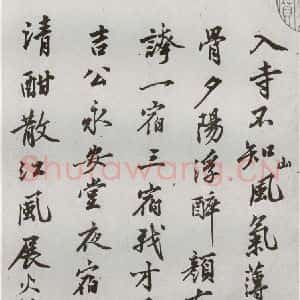 入寺不知山風氣薄
骨夕陽浮醉顏
一宿三宿
吉公永安堂夜宿
清酣散風展火
Shufawang.CN